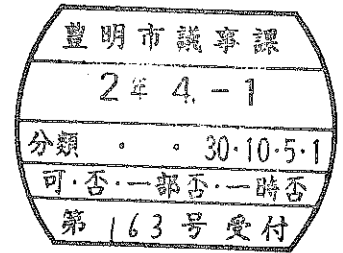 豊明市議事課
2年 4.-1
分類 ・ ・ 30・10・5・1
可・否・一部否・一時否
第 163 号 受付